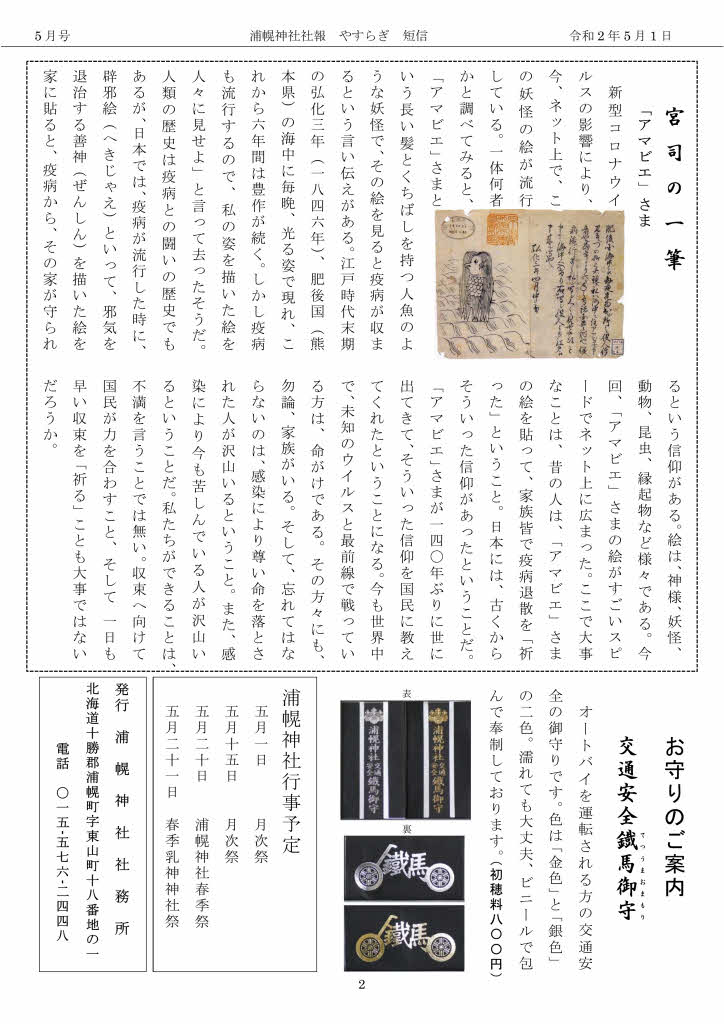 5月号
浦幌神社社報　やすらぎ　短信
令和2年5月1日
宮司の一筆
「アマビエ」さま
新型コロナウイ
ルスの影響により、
今、ネット上で、こ
の妖怪の絵が流行
している。一体何者
かと調べてみると、
「アマビエ」さまと
いう長い髪とくちばしを持つ人魚のよ
うな妖怪で、その絵を見ると疫病が収ま
るという言い伝えがある。江戸時代末期
の弘化三年（一八四六年）、肥後国（熊
本県）の海中に毎晩、光る姿で現れ、こ
れから六年間は豊作が続く。しかし疫病
も流行するので、私の姿を描いた絵を
人々に見せよ」と言って去ったそうだ。
人類の歴史は疫病との闘いの歴史でも
あるが、日本では、疫病が流行した時に、
辟邪絵（へきじゃえ）といって、邪気を
退治する善神（ぜんしん）を描いた絵を
家に貼ると、疫病から、その家が守られ
るという信仰がある。絵は、神様、妖怪、
動物、昆虫、縁起物など様々である。今
回、「アマビエ」さまの絵がすごいスピ
ードでネット上に広まった。ここで大事
なことは、昔の人は、「アマビエ」さま
の絵を貼って、家族皆で疫病退散を「祈
った」ということ。日本には、古くから
そういった信仰があったということだ。
「アマビエ」さまが一四〇年ぶりに世に
出てきて、そういった信仰を国民に教え
てくれたということになる。今も世界中
で、未知のウイルスと最前線で戦ってい
る方は、命がけである。その方々にも、
勿論、家族がいる。そして、忘れてはな
らないのは、感染により尊い命を落とさ
れた人が沢山いるということ。また、感
染により今も苦しんでいる人が沢山い
るということだ。私たちができることは、
不満を言うことでは無い。収束へ向けて
国民が力を合わすこと、そして一日も
早い収束を「祈る」ことも大事ではない
だろうか。
お守りのご案内
交通安全鐵馬御守
てつうまおまもり
オートバイを運転される方の交通安
全の御守りです。色は「金色」と「銀色」
の二色。濡れても大丈夫、ビニールで包
んで奉制しております。（初穂料八〇〇円）
表
浦幌神社
交通安全
鐵馬御守
浦幌神社
交通安全
鐵馬御守
裏
鐵馬
鐵馬
浦幌神社行事予定
五月一日　月次祭
五月十五日　月次祭
五月二十日　浦幌神社春季祭
五月二十一日　春季乳神神社祭
発行　浦幌神社社務所
北海道十勝郡浦幌町字東山町十八番地の一
電話　〇一五-五七六-二四四八
2